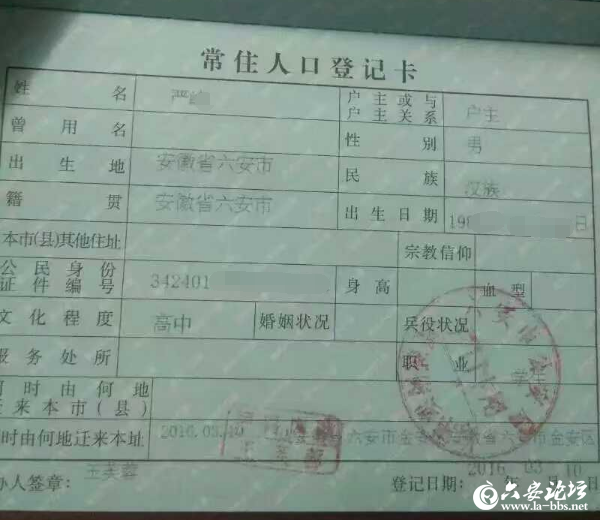 常住人口登记卡
姓名 严峰 户主或与户主关系 户主
曾用名 性别 男
出生地 安徽省六安市 民族 汉族
籍贯 安徽省六安市 出生日期 19 日
本市(县)其他住址 宗教信仰
公民身份证件编号 342401 身高 血型
文化程度 高中 婚姻状况 兵役状况
服务处所 职业 学生
何时由何地迁来本市(县)
何时由何地迁来本址 2016.03.10 六安市金安 安徽省六安市金安区
办人签章: 王芙蓉 登记日期: 2016 年 03 月 10 日
六安论坛
www.la-bbs.net